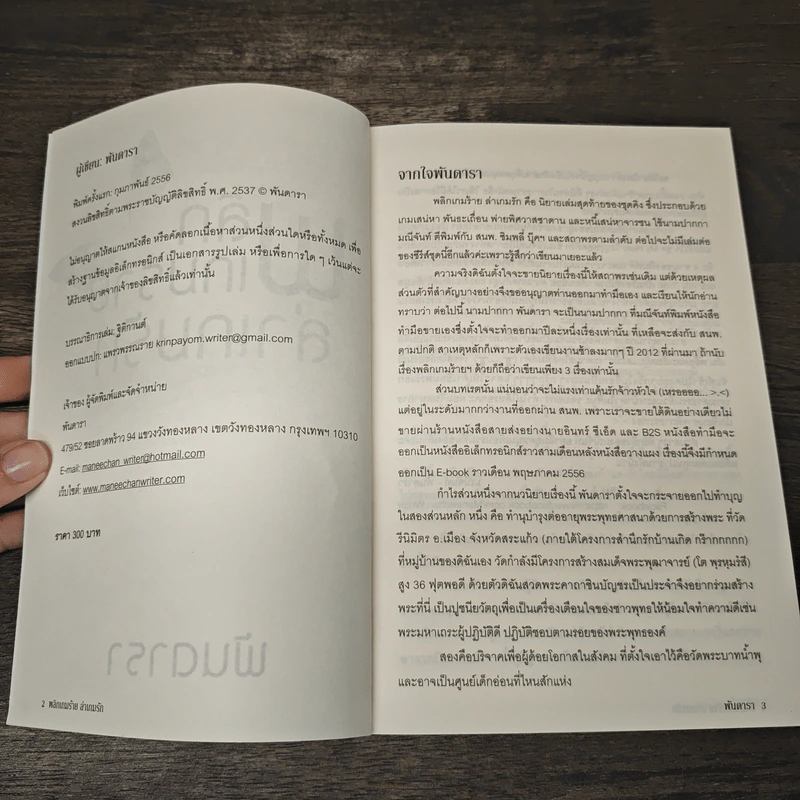 ผู้เขียน: พันดารา
พิมพ์ครั้งแรก: กุมภาพันธ์ 2556
สงวนลิขสิทธิ์ตามพระราชบัญญัติลิขสิทธิ์ พ.ศ. 2537 © พันดารา
ไม่อนุญาตให้สแกนหนังสือ หรือคัดลอกเนื้อหาส่วนหนึ่งส่วนใดหรือทั้งหมด เพื่อ
สร้างฐานข้อมูลอิเล็กทรอนิกส์ เป็นเอกสารรูปเล่ม หรือเพื่อการใด ๆ เว้นแต่จะ
ได้รับอนุญาตจากเจ้าของลิขสิทธิ์แล้วเท่านั้น
บรรณาธิการเล่ม: ฐิติกานต์
ออกแบบปก: แพรวพรรณราย krinpayom.writer@gmail.com
เจ้าของ ผู้จัดพิมพ์และจัดจำหน่าย
พันดารา
479/52 ซอยลาดพร้าว 94 แขวงวังทองหลาง เขตวังทองหลาง กรุงเทพฯ 10310
E-mail: maneechan_writer@hotmail.com
เว็บไซต์: www.maneechanwriter.com
ราคา 300 บาท
2 พลิกเกมร้าย ล่าเกมรัก
จากใจพันดารา
พลิกเกมร้าย ล่าเกมรัก คือ นิยายเล่มสุดท้ายของชุดคิง ซึ่งประกอบด้วย
เกมเสน่หา พันธะเถื่อน พ่ายพิศวาสซาตาน และหนี้เสน่หาจารชน ใช้นามปากกา
มณีจันท์ ตีพิมพ์กับ สนพ. ซิมพลี่ บุ๊คฯ และสถาพรตามลำดับ ต่อไปจะไม่มีเล่มต่อ
ของซีรีส์ชุดนี้อีกแล้วค่ะเพราะรู้สึกว่าเขียนมาเยอะแล้ว
ความจริงดิฉันตั้งใจจะขายนิยายเรื่องนี้ให้สถาพรเช่นเดิม แต่ด้วยเหตุผล
ส่วนตัวที่สำคัญบางอย่างจึงขออนุญาตท่านออกมาทำมือเอง และเรียนให้นักอ่าน
ทราบว่า ต่อไปนี้ นามปากกา พันดารา จะเป็นนามปากกา ที่มณีจันท์พิมพ์หนังสือ
ทำมือขายเองซึ่งตั้งใจจะทำออกมาปีละหนึ่งเรื่องเท่านั้น ที่เหลือจะส่งกับ สนพ.
ตามปกติ สาเหตุหลักก็เพราะตัวเองเขียนงานช้าลงมากๆ ปี 2012 ที่ผ่านมา ถ้านับ
เรื่องพลิกเกมร้ายฯ ด้วยก็ถือว่าเขียนเพียง 3 เรื่องเท่านั้น
ส่วนบทเรตนั้น แน่นอนว่าจะไม่แรงเท่าแค้นรักจ้าวหัวใจ (เหรอออออ... >.<)
แต่อยู่ในระดับมากกว่างานที่ออกผ่าน สนพ. เพราะเราจะขายใต้ดินอย่างเดียวไม่
ขายผ่านร้านหนังสือสายส่งอย่างนายอินทร์ ซีเอ็ด และ B2S หนังสือทำมือจะ
ออกเป็นหนังสืออิเล็กทรอนิกส์ราวสามเดือนหลังหนังสือวางแผง เรื่องนี้จึงมีกำหนด
ออกเป็น E-book ราวเดือน พฤษภาคม 2556
กำไรส่วนหนึ่งจากนวนิยายเรื่องนี้ พันดาราตั้งใจจะกระจายออกไปทำบุญ
ในสองส่วนหลัก หนึ่ง คือ ทำนุบำรุงต่ออายุพระพุทธศาสนาด้วยการสร้างพระ ที่วัด
รีนิมิตร อ.เมือง จังหวัดสระแก้ว (ภายใต้โครงการสำนึกรักบ้านเกิด กร๊ากกกกก)
ที่หมู่บ้านของดิฉันเอง วัดกำลังมีโครงการสร้างสมเด็จพระพุฒาจารย์ (โต พฺรหฺมรํสี)
สูง 36 ฟุตพอดี ด้วยตัวดิฉันสวดพระคาถาชินบัญชรเป็นประจำจึงอยากร่วมสร้าง
พระที่นี่ เป็นปูชนียวัตถุเพื่อเป็นเครื่องเตือนใจของชาวพุทธให้น้อมใจทำความดีเช่น
พระมหาเถระผู้ปฏิบัติดี ปฏิบัติชอบตามรอยของพระพุทธองค์
สองคือบริจาคเพื่อผู้ด้อยโอกาสในสังคม ที่ตั้งใจเอาไว้คือวัดพระบาทน้ำพุ
และอาจเป็นศูนย์เด็กอ่อนที่ไหนสักแห่ง
พันดารา 3